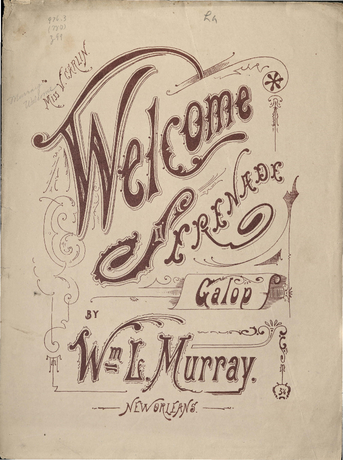 Miss V. Carlin
Welcome
Serenade
Galop
BY
Wm L. Murray.
New Orleans.